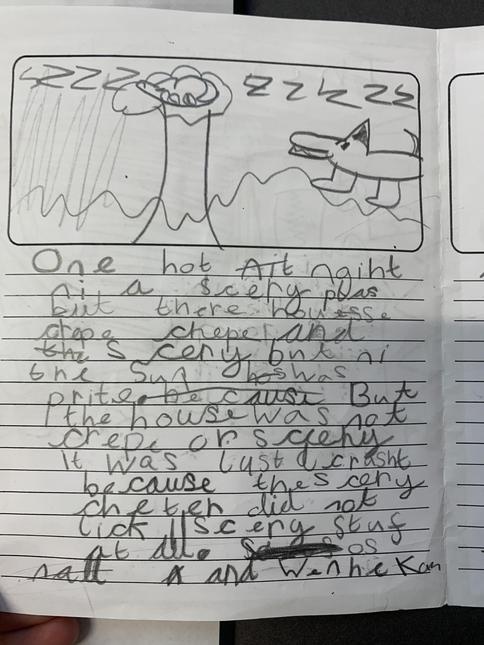 zzzz zzzzz
One hot naiht
ni a scery plas
but there housse
crepe cheper and
the scery but ni
the sun was
prite. But
the house was not
crepe or scery
It was lust a crasht
because the scery
cheter did not
lick scery stuf
at all. os
natt and wenhe kam